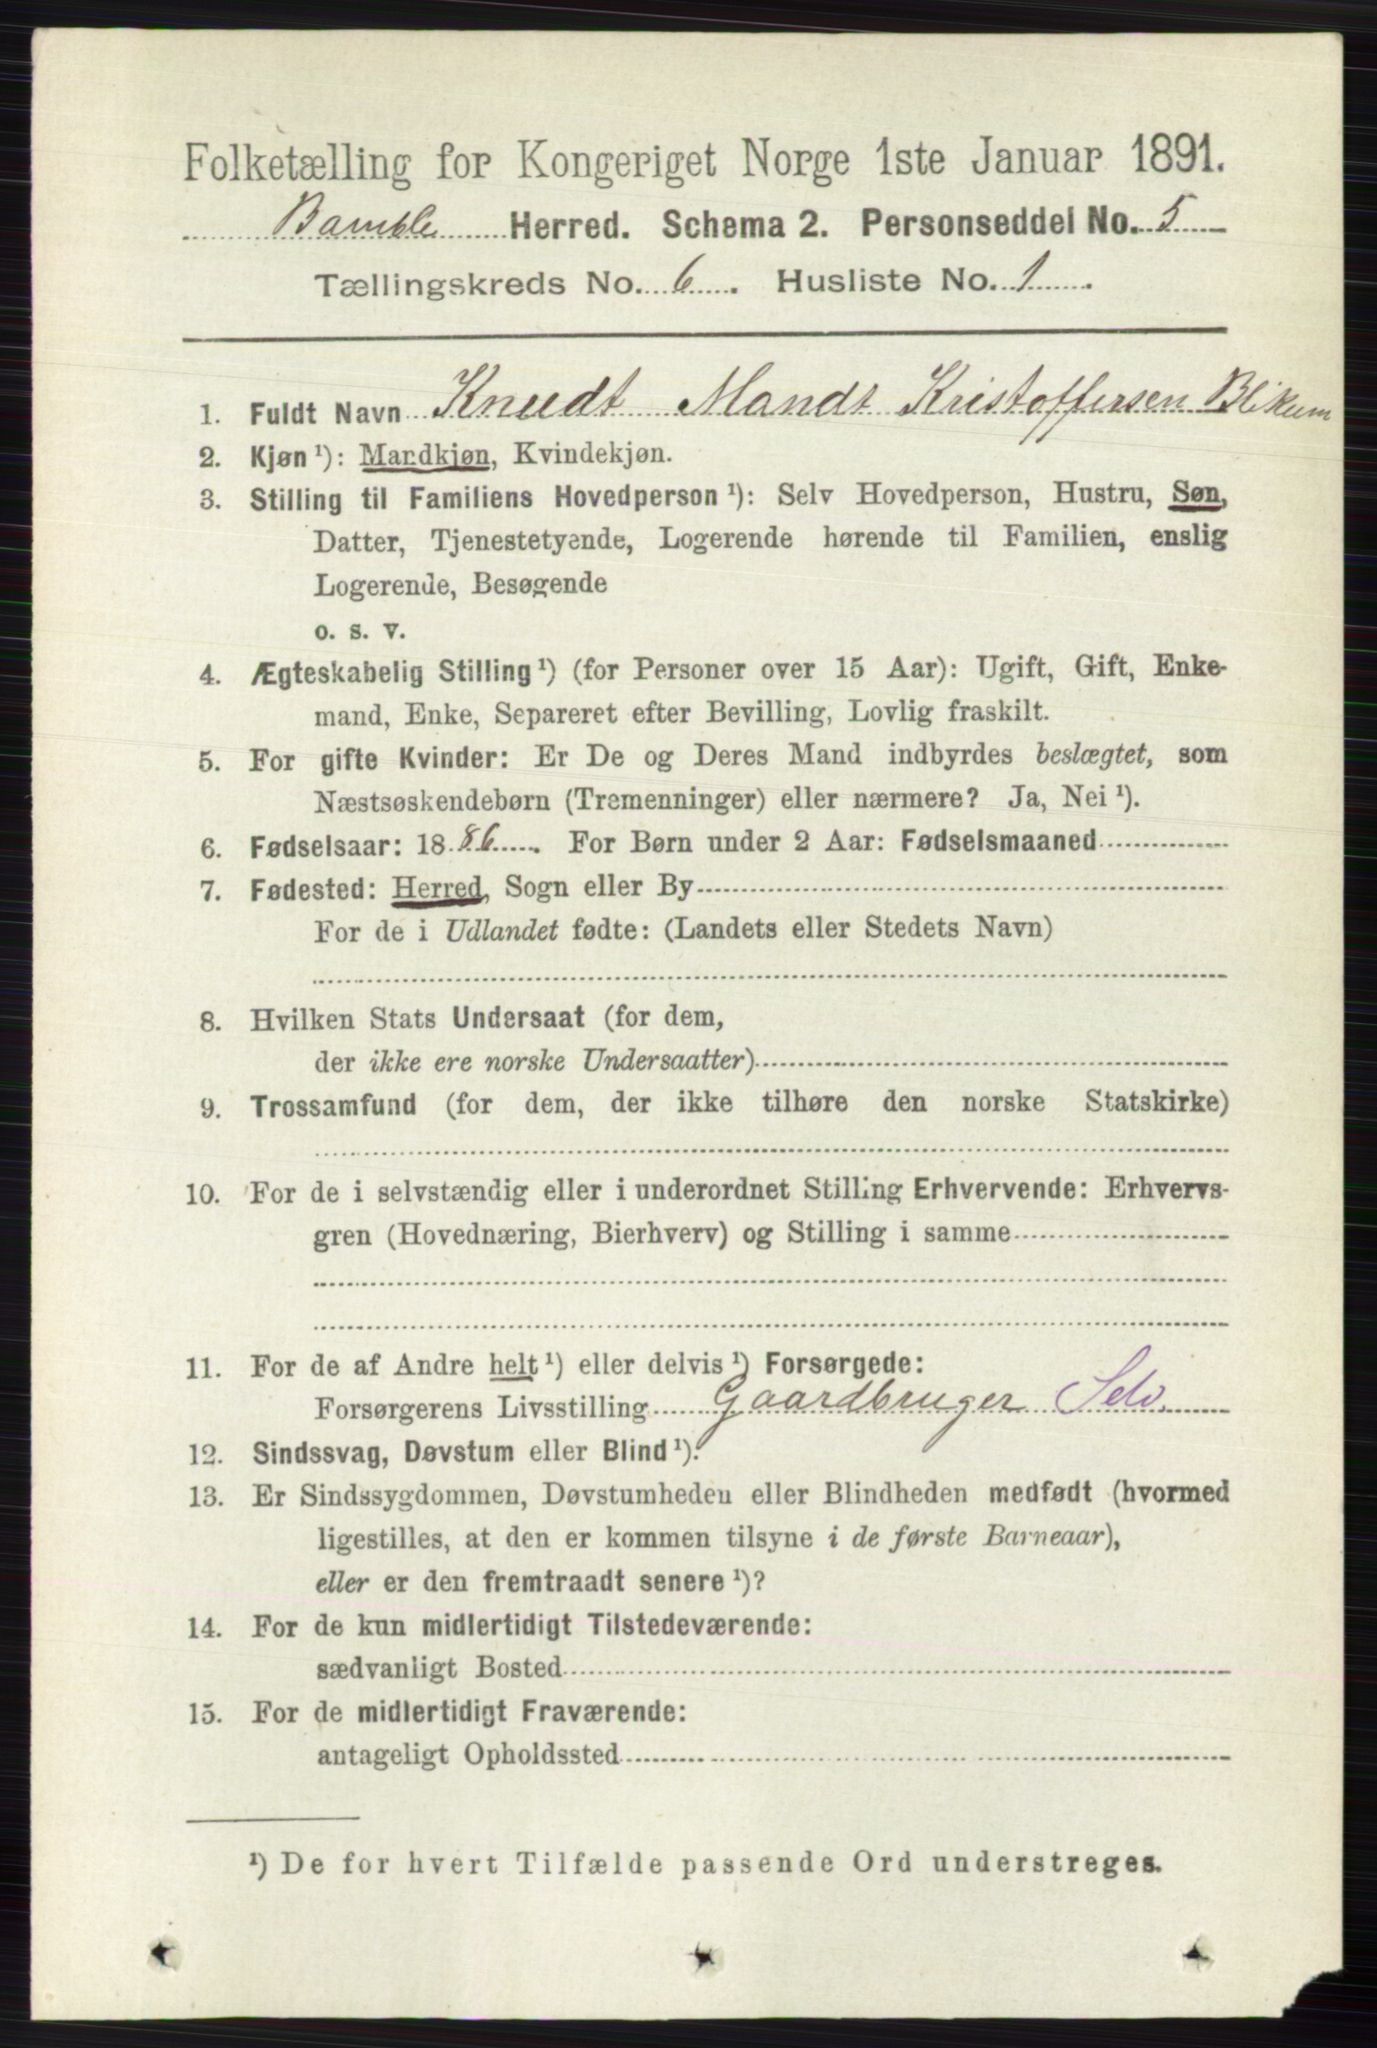 Folketælling for Kongeriget Norge 1ste Januar 1891.
Bamble Herred. Schema 2. Personseddel No. 5
Tællingskreds No. 6. Husliste No. 1.
1. Fuldt Navn Knudt Mandt Kristoffersen Blikum
2. Kjøn ¹): Mandkjøn, Kvindekjøn.
3. Stilling til Familiens Hovedperson ¹): Selv Hovedperson, Hustru, Søn,
Datter, Tjenestetyende, Logerende hørende til Familien, enslig
Logerende, Besøgende
o. s. v.
4. Ægteskabelig Stilling ¹) (for Personer over 15 Aar): Ugift, Gift, Enke-
mand, Enke, Separeret efter Bevilling, Lovlig fraskilt.
5. For gifte Kvinder: Er De og Deres Mand indbyrdes beslægtet, som
Næstsøskendebørn (Tremenninger) eller nærmere? Ja, Nei ¹).
6. Fødselsaar: 1886. For Børn under 2 Aar: Fødselsmaaned
7. Fødested: Herred, Sogn eller By
For de i Udlandet fødte: (Landets eller Stedets Navn)
8. Hvilken Stats Undersaat (for dem,
der ikke ere norske Undersaatter)
9. Trossamfund (for dem, der ikke tilhøre den norske Statskirke)
10. For de i selvstændig eller i underordnet Stilling Erhvervende: Erhvervs-
gren (Hovednæring, Bierhverv) og Stilling i samme
11. For de af Andre helt ¹) eller delvis ¹) Forsørgede:
Forsørgerens Livsstilling Gaardbruger Selv.
12. Sindssvag, Døvstum eller Blind ¹).
13. Er Sindssygdommen, Døvstumheden eller Blindheden medfødt (hvormed
ligestilles, at den er kommen tilsyne i de første Barneaar),
eller er den fremtraadt senere ¹)?
14. For de kun midlertidigt Tilstedeværende:
sædvanligt Bosted
15. For de midlertidigt Fraværende:
antageligt Opholdssted
¹) De for hvert Tilfælde passende Ord understreges.